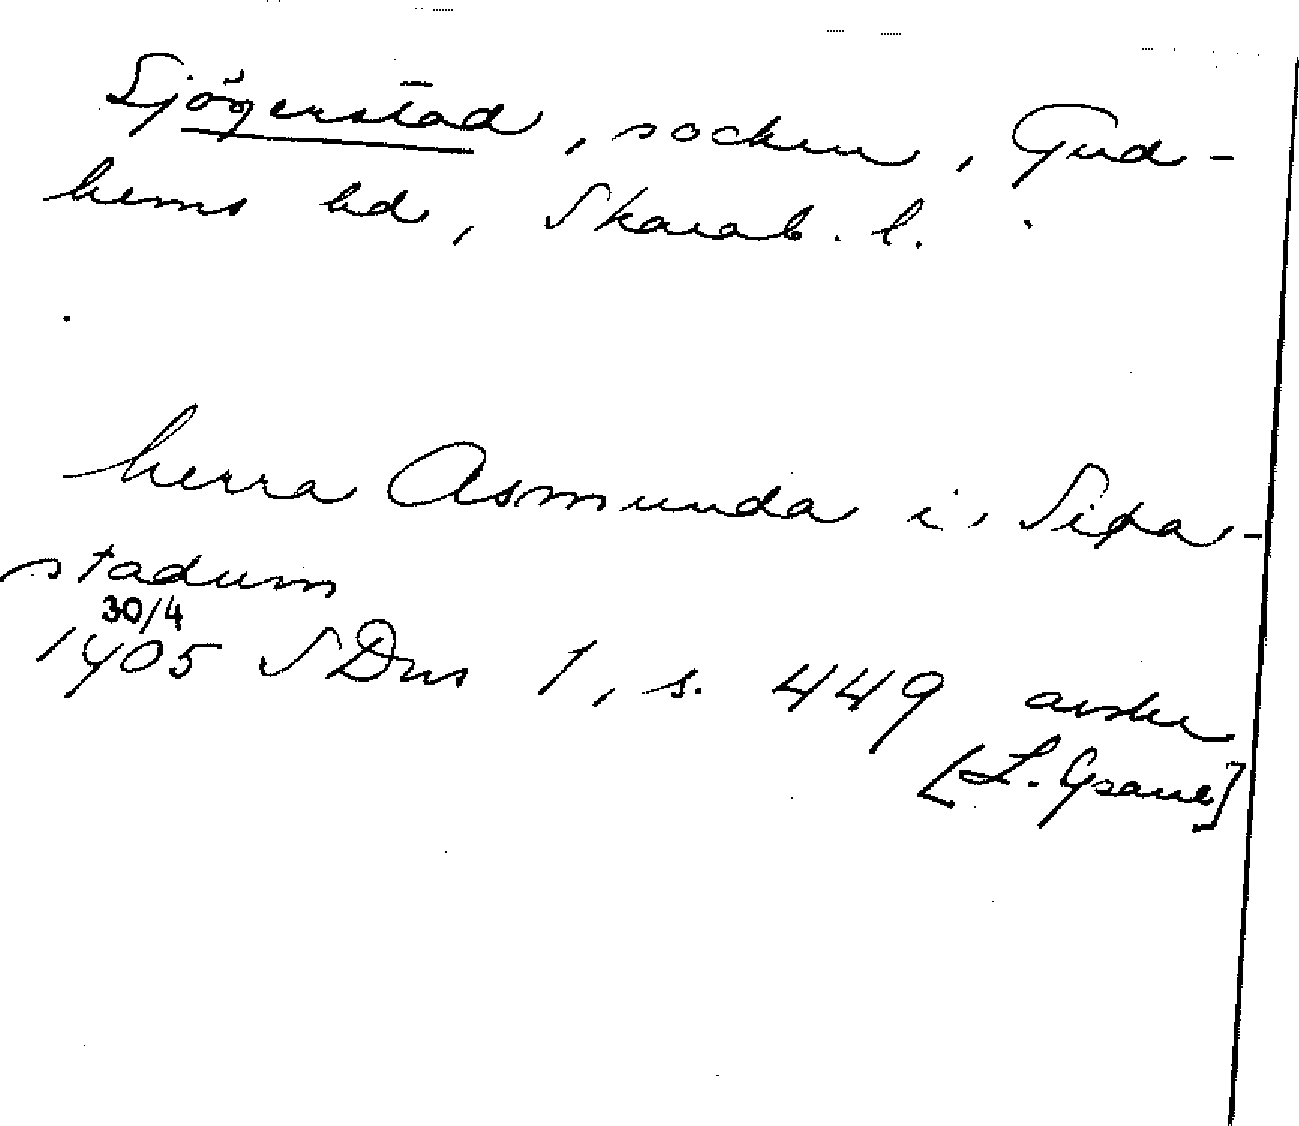 Sjögerstad, socken, Gud-
hems hd, Skarab. l.
herra Asmunda i, Sixa-
stadum
30/4
1405 SDns 1, s. 449 avskr
[L. Gsaue]